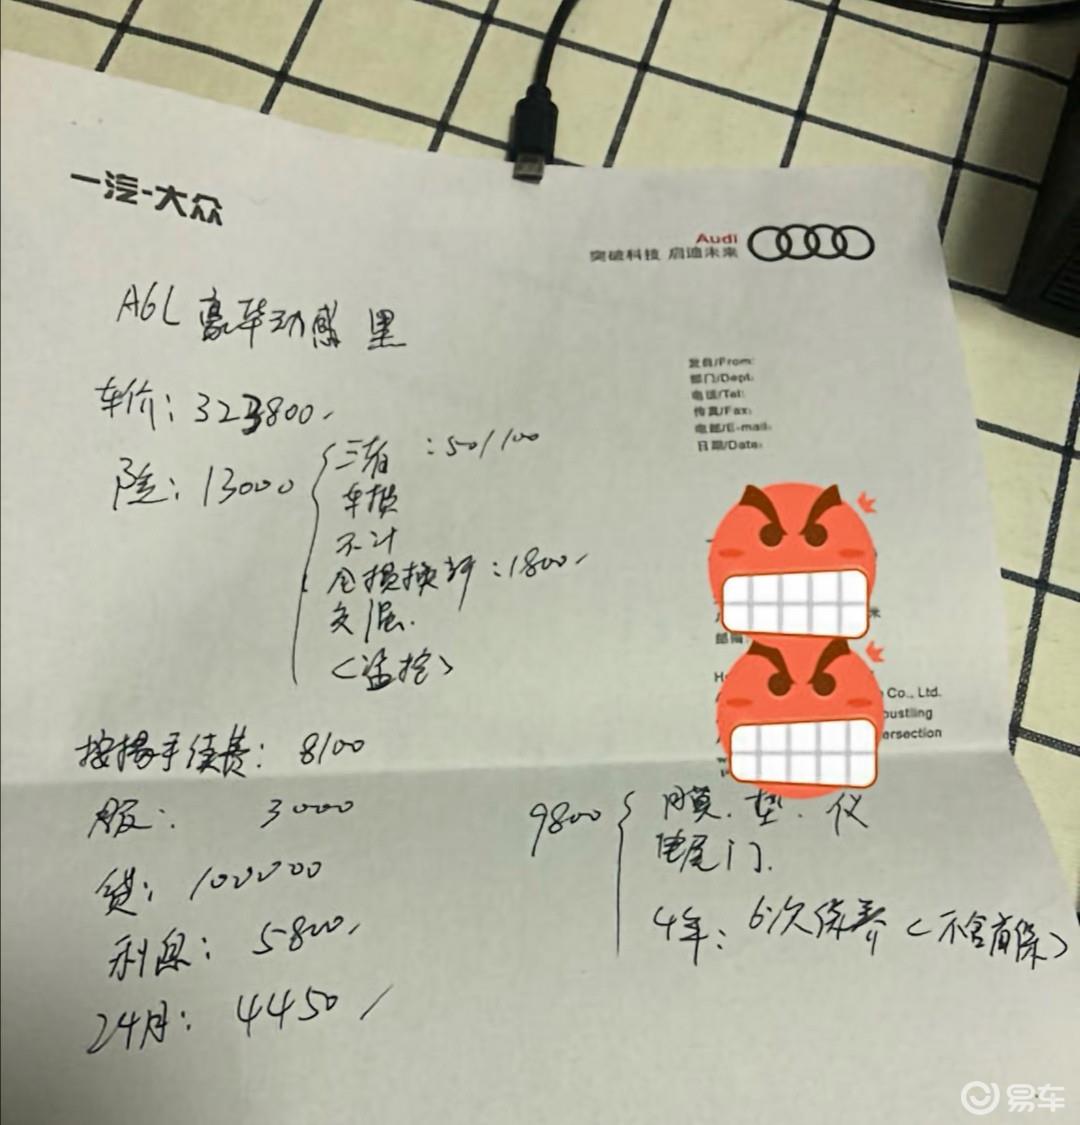 一汽-大众
Audi
突破科技 启迪未来
A6L 豪华动感 黑
发自/From:
部门/Dept:
电话/Tel:
传真/Fax:
电邮/E-mail:
日期/Date:
车价: 323800
险: 13000
三者: 50/100
车损
不计
全损换新: 1800
交强.
(监控)
邮编
Co., Ltd.
bustling
ersection
按揭手续费: 8100
服: 3000
贷: 100000
利息: 5800
24月: 4450
9800
膜. 垫. 仪
电尾门.
4年: 6次保养 (不含首保)
易车